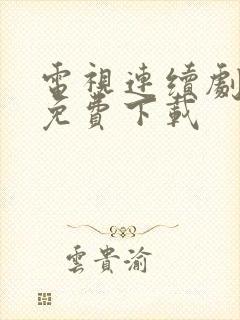 電視連續劇
免費下載
雲貴渝